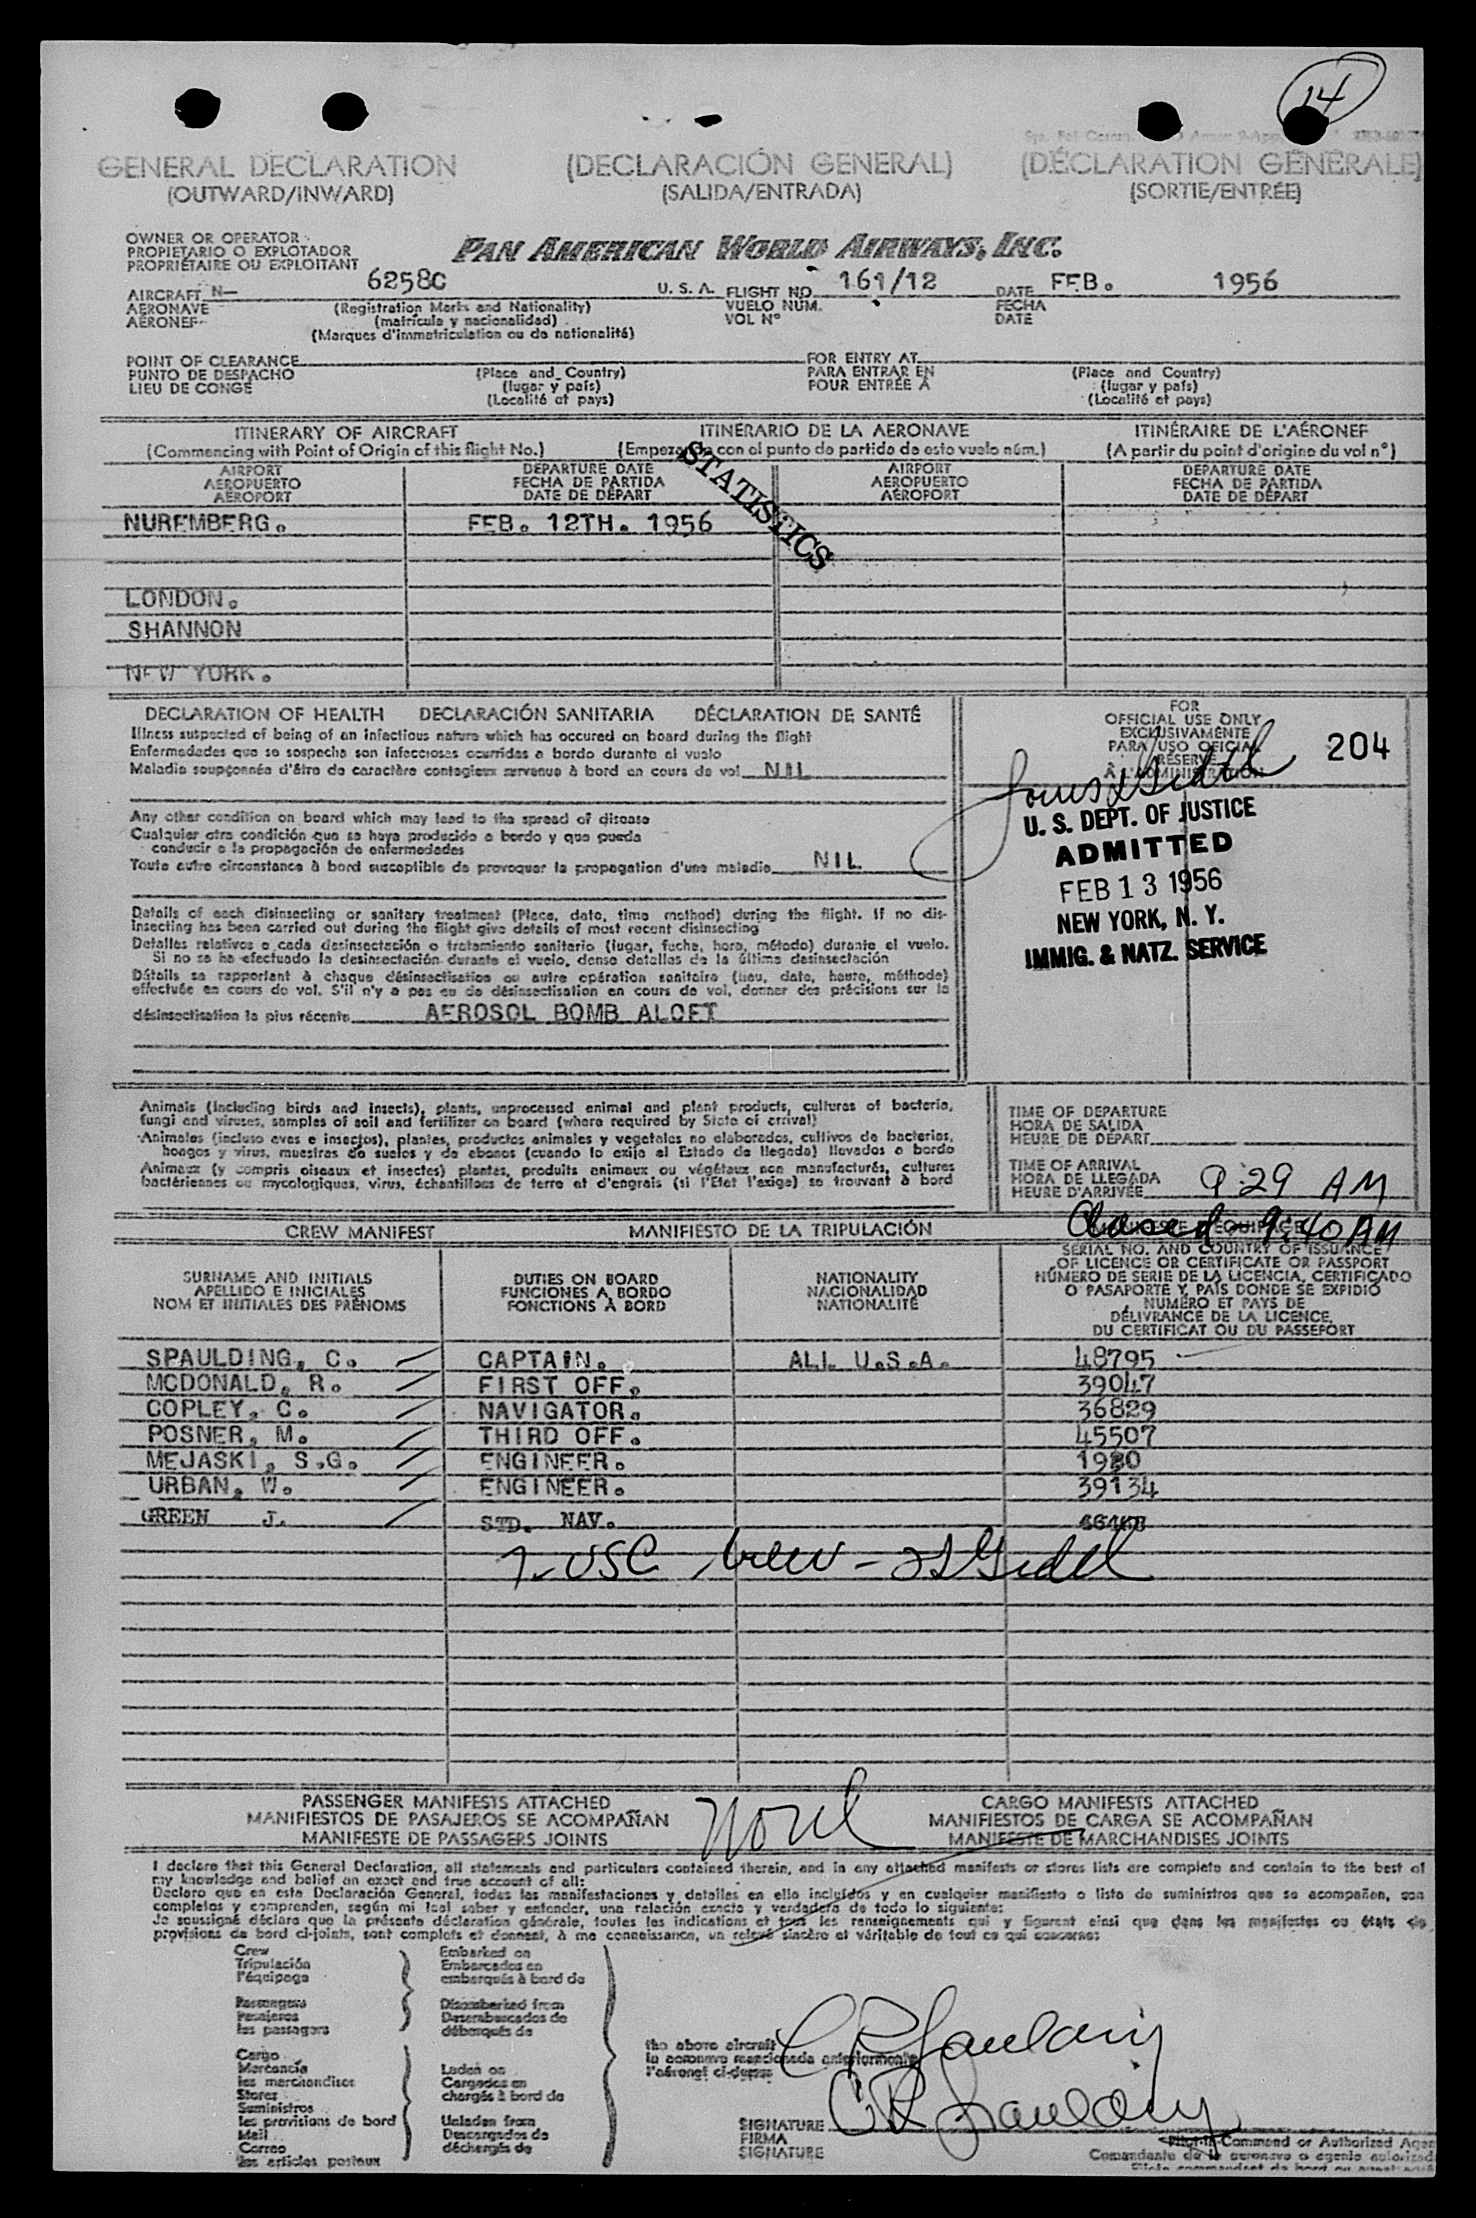 14
GENERAL DECLARATION (DECLARACIÓN GENERAL) (DÉCLARATION GÉNÉRALE)
(OUTWARD/INWARD) (SALIDA/ENTRADA) (SORTIE/ENTRÉE)
OWNER OR OPERATOR
PROPIETARIO O EXPLOTADOR
PROPRIÉTAIRE OU EXPLOITANT
PAN AMERICAN WORLD AIRWAYS, INC.
AIRCRAFT N- 6258C U. S. A. FLIGHT NO. 161/12 DATE FEB. 1956
AERONAVE (Registration Marks and Nationality) VUELO NÚM. FECHA
AÉRONEF (matrícula y nacionalidad) VOL Nº DATE
(Marques d'immatriculation ou de nationalité)
POINT OF CLEARANCE FOR ENTRY AT
PUNTO DE DESPACHO (Place and Country) PARA ENTRAR EN (Place and Country)
LIEU DE CONGÉ (lugar y país) POUR ENTRÉE À (lugar y país)
(Localité et pays) (Localité et pays)
ITINERARY OF AIRCRAFT ITINERARIO DE LA AERONAVE ITINÉRAIRE DE L'AÉRONEF
(Commencing with Point of Origin of this flight No.) (Empezando con el punto de partida de este vuelo núm.) (A partir du point d'origine du vol nº)
AIRPORT DEPARTURE DATE AIRPORT DEPARTURE DATE
AEROPUERTO FECHA DE PARTIDA AEROPUERTO FECHA DE PARTIDA
AÉROPORT DATE DE DÉPART AÉROPORT DATE DE DÉPART
STATISTICS
NUREMBERG. FEB. 12TH. 1956
LONDON.
SHANNON
NEW YORK.
DECLARATION OF HEALTH DECLARACIÓN SANITARIA DÉCLARATION DE SANTÉ
Illness suspected of being of an infectious nature which has occured on board during the flight
Enfermedades que se sospecha son infecciosas ocurridas a bordo durante el vuelo
Maladie soupçonnée d'être de caractère contagieux survenue à bord en cours de vol NIL
Any other condition on board which may lead to the spread of disease
Cualquier otra condición que se haya producido a bordo y que pueda
conducir a la propagación de enfermedades
Toute autre circonstance à bord susceptible de provoquer la propagation d'une maladie NIL
Details of each disinsecting or sanitary treatment (Place, date, time method) during the flight. If no dis-
insecting has been carried out during the flight give details of most recent disinsecting
Detalles relativos a cada desinsectación o tratamiento sanitario (lugar, fecha, hora, método) durante el vuelo.
Si no se ha efectuado la desinsectación durante el vuelo, dense detalles de la última desinsectación
Détails se rapportant à chaque désinsectisation ou autre opération sanitaire (lieu, date, heure, méthode)
effectuée en cours de vol. S'il n'y a pas eu de désinsectisation en cours de vol, donner des précisions sur la
désinsectisation la plus récente AEROSOL BOMB ALOFT
FOR
OFFICIAL USE ONLY
EXCLUSIVAMENTE
PARA USO OFICIAL
RÉSERVÉ
À L'ADMINISTRATION
204
U. S. DEPT. OF JUSTICE
ADMITTED
FEB 13 1956
NEW YORK, N. Y.
IMMIG. & NATZ. SERVICE
Animals (including birds and insects), plants, unprocessed animal and plant products, cultures of bacteria,
fungi and viruses, samples of soil and fertilizer on board (where required by State of arrival)
Animales (incluso aves e insectos), plantes, productos animales y vegetales no elaborados, cultivos de bacterias,
hongos y virus, muestras de suelos y de abonos (cuando lo exija el Estado de llegada) llevados a bordo
Animaux (y compris oiseaux et insectes) plantes, produits animaux ou végétaux non manufacturés, cultures
bactériennes ou mycologiques, virus, échantillons de terre et d'engrais (si l'Etat l'exige) se trouvant à bord
TIME OF DEPARTURE
HORA DE SALIDA
HEURE DE DÉPART
TIME OF ARRIVAL
HORA DE LLEGADA
HEURE D'ARRIVÉE 9:29 AM
9:40 AM
CREW MANIFEST MANIFIESTO DE LA TRIPULACIÓN
SURNAME AND INITIALS
APELLIDO E INICIALES
NOM ET INITIALES DES PRÉNOMS
DUTIES ON BOARD
FUNCIONES A BORDO
FONCTIONS À BORD
NATIONALITY
NACIONALIDAD
NATIONALITÉ
SERIAL NO. AND COUNTRY OF ISSUANCE
OF LICENCE OR CERTIFICATE OR PASSPORT
NÚMERO DE SERIE DE LA LICENCIA, CERTIFICADO
O PASAPORTE Y PAÍS DONDE SE EXPIDIÓ
NUMÉRO ET PAYS DE
DÉLIVRANCE DE LA LICENCE,
DU CERTIFICAT OU DU PASSEPORT
SPAULDING, C. CAPTAIN. ALL U.S.A. 48795
MCDONALD, R. FIRST OFF. 39047
COPLEY, C. NAVIGATOR. 36829
POSNER, M. THIRD OFF. 45507
MEJASKI, S.G. ENGINEER. 1980
URBAN, W. ENGINEER. 39134
GREEN J. STD. NAV.
7-USC Crew
PASSENGER MANIFESTS ATTACHED CARGO MANIFESTS ATTACHED
MANIFIESTOS DE PASAJEROS SE ACOMPAÑAN MANIFIESTOS DE CARGA SE ACOMPAÑAN
MANIFESTE DE PASSAGERS JOINTS MANIFESTE DE MARCHANDISES JOINTS
None
I declare that this General Declaration, all statements and particulars contained therein, and in any attached manifests or stores lists are complete and contain to the best of
my knowledge and belief an exact and true account of all:
Declaro que en esta Declaración General, todas las manifestaciones y detalles en ella incluídos y en cualquier manifiesto o lista de suministros que se acompañen, son
completos y comprenden, según mi leal saber y entender, una relación exacta y verdadera de todo lo siguiente:
Je soussigné déclare que la présente déclaration générale, toutes les indications et tous les renseignements qui y figurent ainsi que dans les manifestes ou états de
provisions de bord ci-joints, sont complets et donnent, à ma connaissance, un relevé sincère et véritable de tout ce qui concerne:
Crew Embarked on
Tripulación Embarcados en
l'équipage embarqués à bord de
Passengers Disembarked from
Pasajeros Desembarcados de
les passagers débarqués de
Cargo
Mercancía Laden on
les marchandises Cargados en
Stores chargés à bord de
Suministros
les provisions de bord Unladen from
Mail Descargados de
Correo déchargés de
les articles postaux
the above aircraft
la aeronave mencionada anteriormente
l'aéronef ci-dessus
C R Spaulding
C R Spaulding
SIGNATURE
FIRMA
SIGNATURE
Pilot-in-Command or Authorized Agen
Comandante de la aeronave o agente autorizad